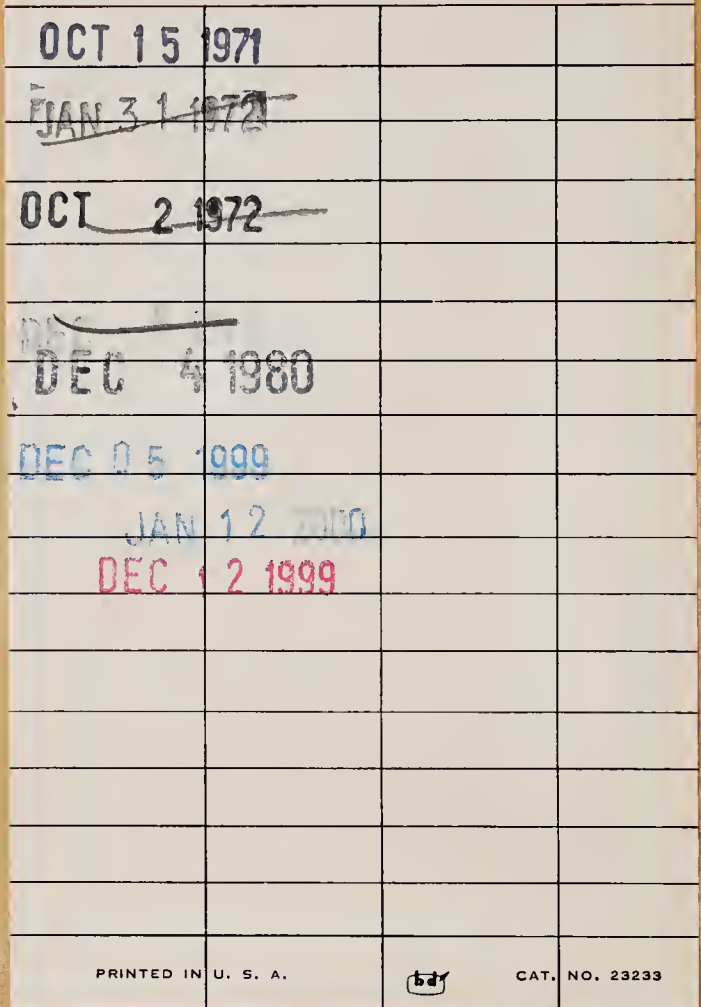 OCT 15 1971
JAN 31 1972
OCT 2 1972
DEC
DEC 4 1980
DEC 05 1999
JAN 12 2000
DEC 12 1999
PRINTED IN U. S. A. bd CAT. NO. 23233